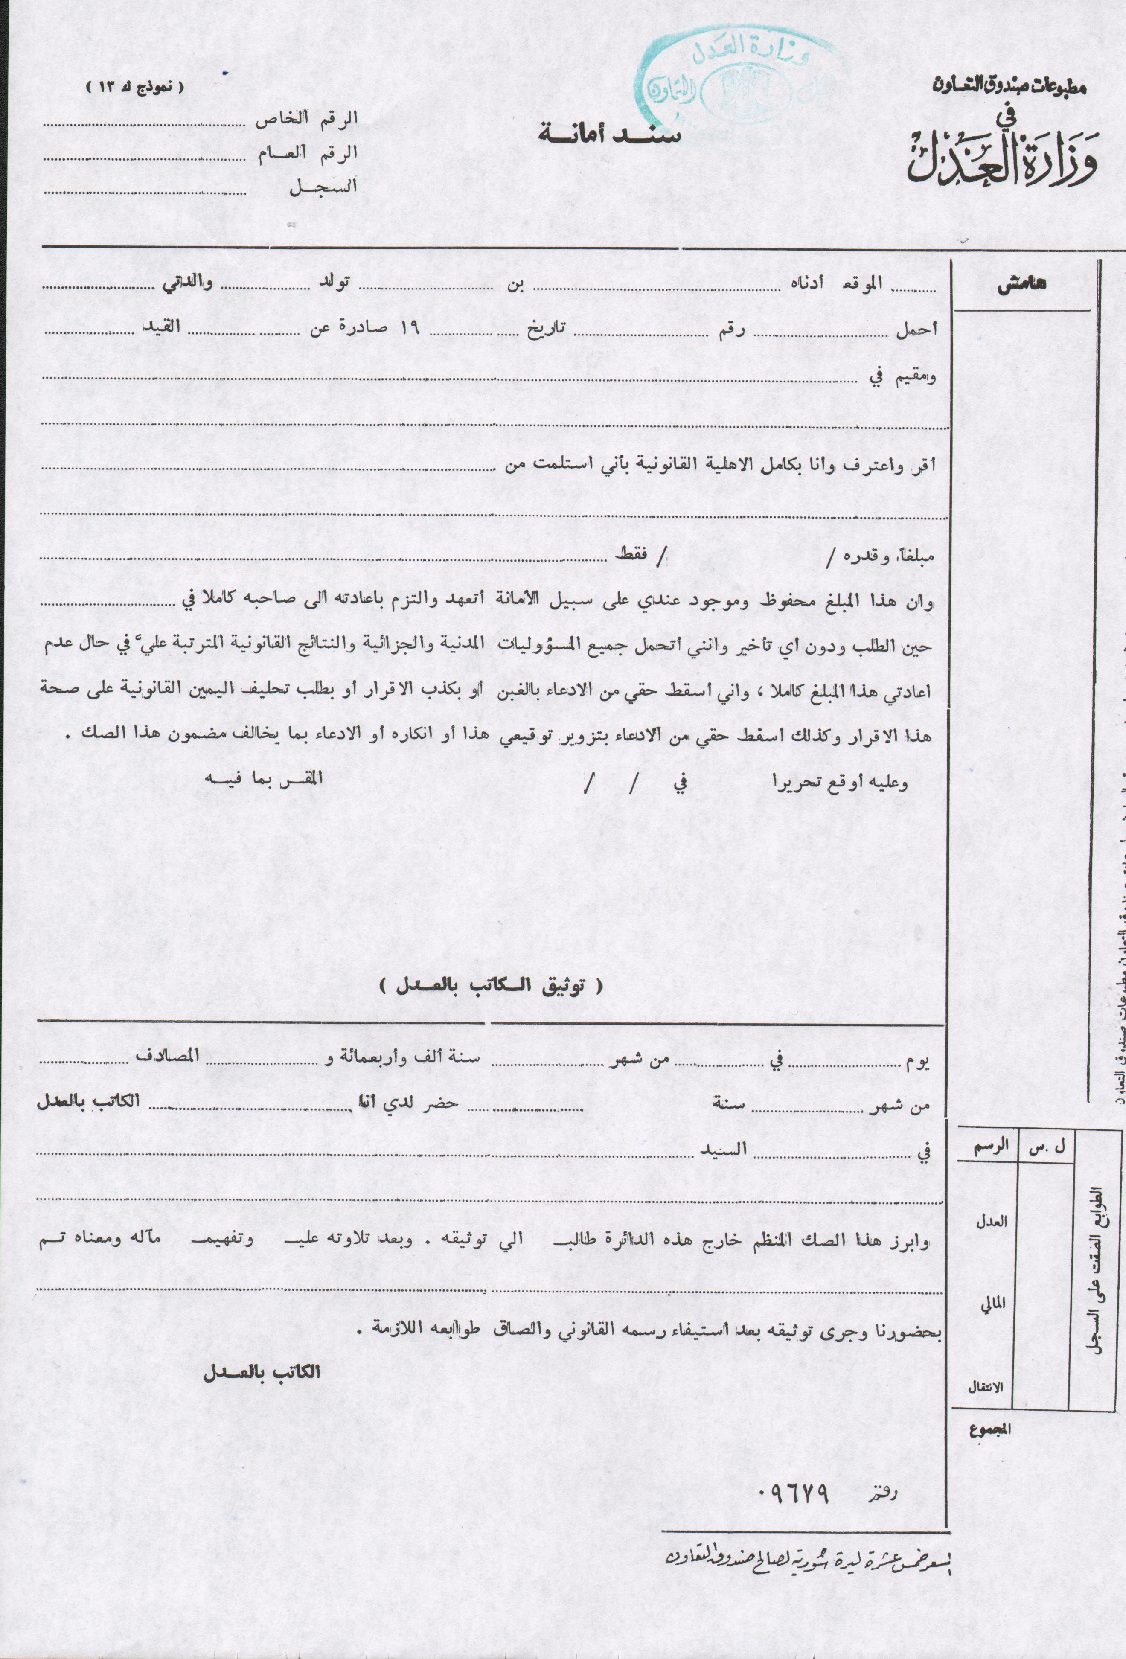 وزارة العدل
التعاون
مطبوعات صندوق التعاون
في
وزارة العدل
سند أمانة
( نموذج ك ١٣ )
الرقم الخاص ....................
الرقم العام ....................
السجل ....................
هامش
........ الموقع أدناه .................... بن .................... تولد .................... والدتي ....................
احمل .................... رقم .................... تاريخ .................... ١٩ صادرة عن .................... القيد ....................
ومقيم في ....................
أقر واعترف وأنا بكامل الاهلية القانونية بأني استلمت من ....................
مبلغاً وقدره / / فقط ....................
وان هذا المبلغ محفوظ وموجود عندي على سبيل الأمانة أتعهد والتزم باعادته الى صاحبه كاملا في ....................
حين الطلب ودون أي تأخير وانني أتحمل جميع المسؤوليات المدنية والجزائية والنتائج القانونية المترتبة علي في حال عدم
اعادتي هذا المبلغ كاملا ، واني أسقط حقي من الادعاء بالغبن أو بكذب الاقرار أو بطلب تحليف اليمين القانونية على صحة
هذا الاقرار وكذلك اسقط حقي من الادعاء بتزوير توقيعي هذا أو انكاره أو الادعاء بما يخالف مضمون هذا الصك .
وعليه أوقع تحريرا في / / المقر بما فيه
( توثيق الكاتب بالعدل )
يوم .................... في .................... من شهر .................... سنة ألف وأربعمائة و .................... المصادف ....................
من شهر .................... سنة .................... حضر لدي أنا .................... الكاتب بالعدل
في .................... السيد ....................
وابرز هذا الصك المنظم خارج هذه الدائرة طالبـ الي توثيقه . وبعد تلاوته عليـ وتفهيمـ مآله ومعناه تم
بحضورنا وجرى توثيقه بعد استيفاء رسمه القانوني والصاق طوابعه اللازمة .
الكاتب بالعدل
الرسم ل . س
العدل
المالي
الانتقال
المجموع
الطوابع الصقت على السجل
رقم ٠٩٦٧٩
السعر خمس عشرة ليرة سورية لصالح صندوق التعاون